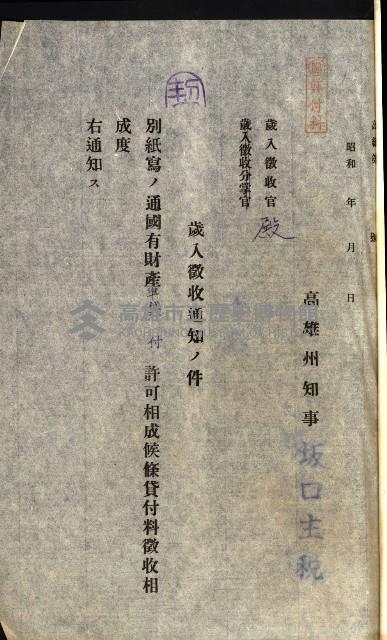 昭和　年　月　日
高雄州知事　坂口主税
歲入徵收官
歲入徵收分掌官
殿
歲入徵收通知ノ件
別紙寫ノ通國有財產　付　許可相成候條貸付料徵收相
成度
右通知ス
高雄市立歷史博物館